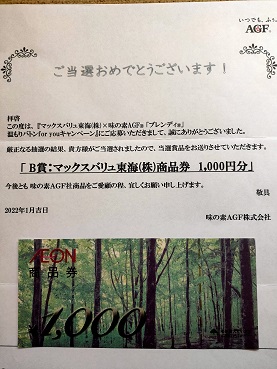 いつでも、ふぅ
AGF®
ご当選おめでとうございます!
拝啓
この度は、『マックスバリュ東海(株)×味の素AGF㈱「ブレンディ®」
温もりバトンfor youキャンペーン』にご応募いただきまして、誠にありがとうございました。
厳正なる抽選の結果、貴方様がご当選されましたので、当選賞品をお送りさせていただきます。
「B賞:マックスバリュ東海(株)商品券 1,000円分」
今後とも 味の素AGF社商品をご愛顧の程、宜しくお願い申し上げます。
敬具
2022年1月吉日
味の素AGF株式会社
ÆON
商品券
¥1,000